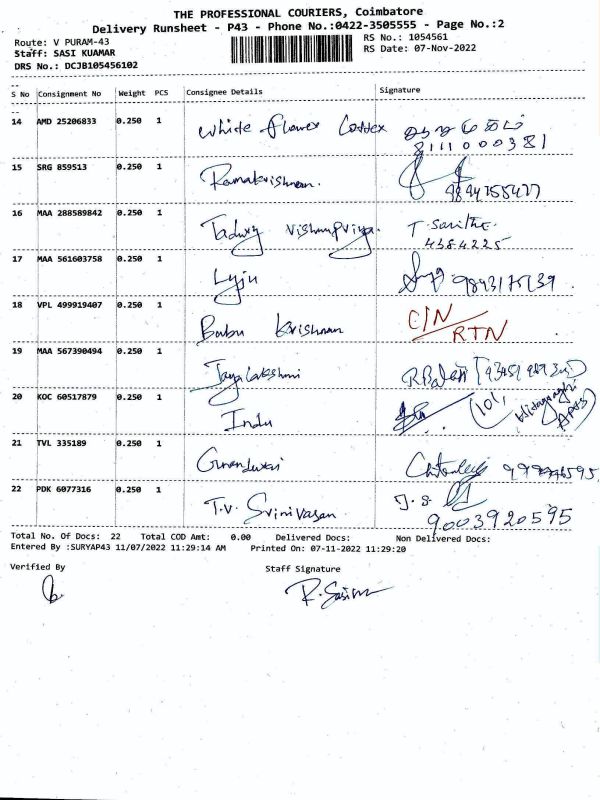 THE PROFESSIONAL COURIERS, Coimbatore
Delivery Runsheet - P43 - Phone No.:0422-3505555 - Page No.:2
Route: V PURAM-43
RS No.: 1054561
Staff: SASI KUAMAR
RS Date: 07-Nov-2022
DRS No.: DCJB105456102
S No Consignment No Weight PCS Consignee Details Signature
14 AMD 25206833 0.250 1 White flower 8111000381
15 SRG 859513 0.250 1 Ramakrishnan.
16 MAA 288589842 0.250 1 Vishnupriya. T. Saritha
4384225
17 MAA 561603758 0.250 1
18 VPL 499919407 0.250 1 Babu Krishnan C/N
RTN
19 MAA 567390494 0.250 1 Jayalakshmi
20 KOC 60517879 0.250 1 Indu 101,
Apts
21 TVL 335189 0.250 1
22 PDK 6077316 0.250 1 T.V. Srinivasan
9003920595
Total No. Of Docs: 22 Total COD Amt: 0.00 Delivered Docs: Non Delivered Docs:
Entered By :SURYAP43 11/07/2022 11:29:14 AM Printed On: 07-11-2022 11:29:20
Verified By Staff Signature